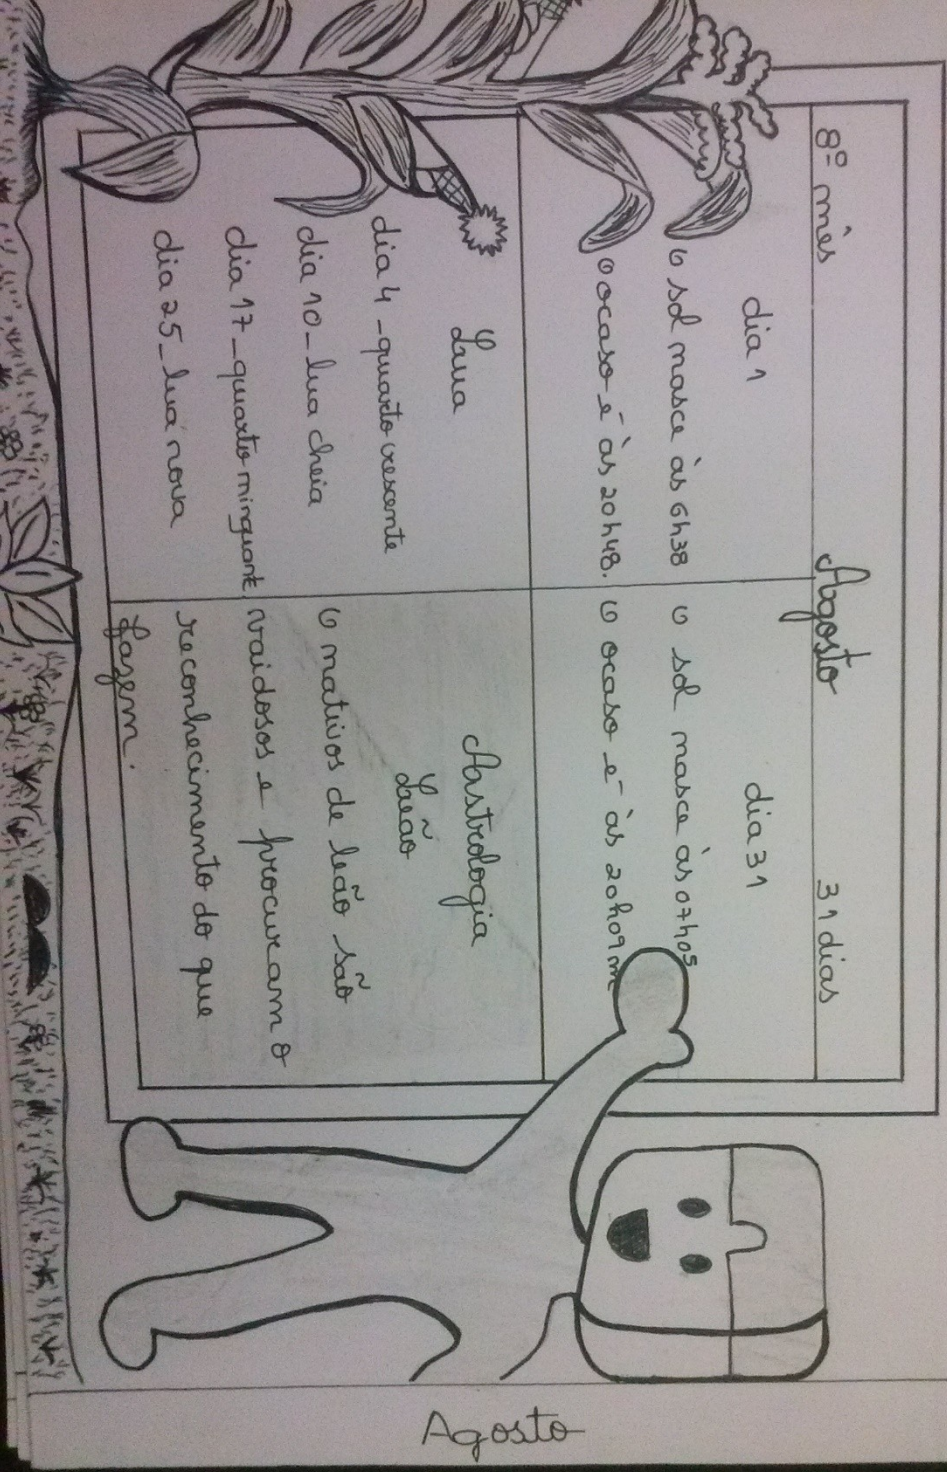 8º mês Agosto 31 dias
dia 1
O sol nasce às 6h38
O ocaso é às 20h48.
dia 31
O sol nasce às 07h05
O ocaso é às 20h09m
Lua
dia 4 - quarto crescente
dia 10 - lua cheia
dia 17 - quarto minguante
dia 25 - lua nova
Astrologia
Leão
O nativos de leão são
vaidosos e procuram o
reconhecimento do que
fazem.
Agosto